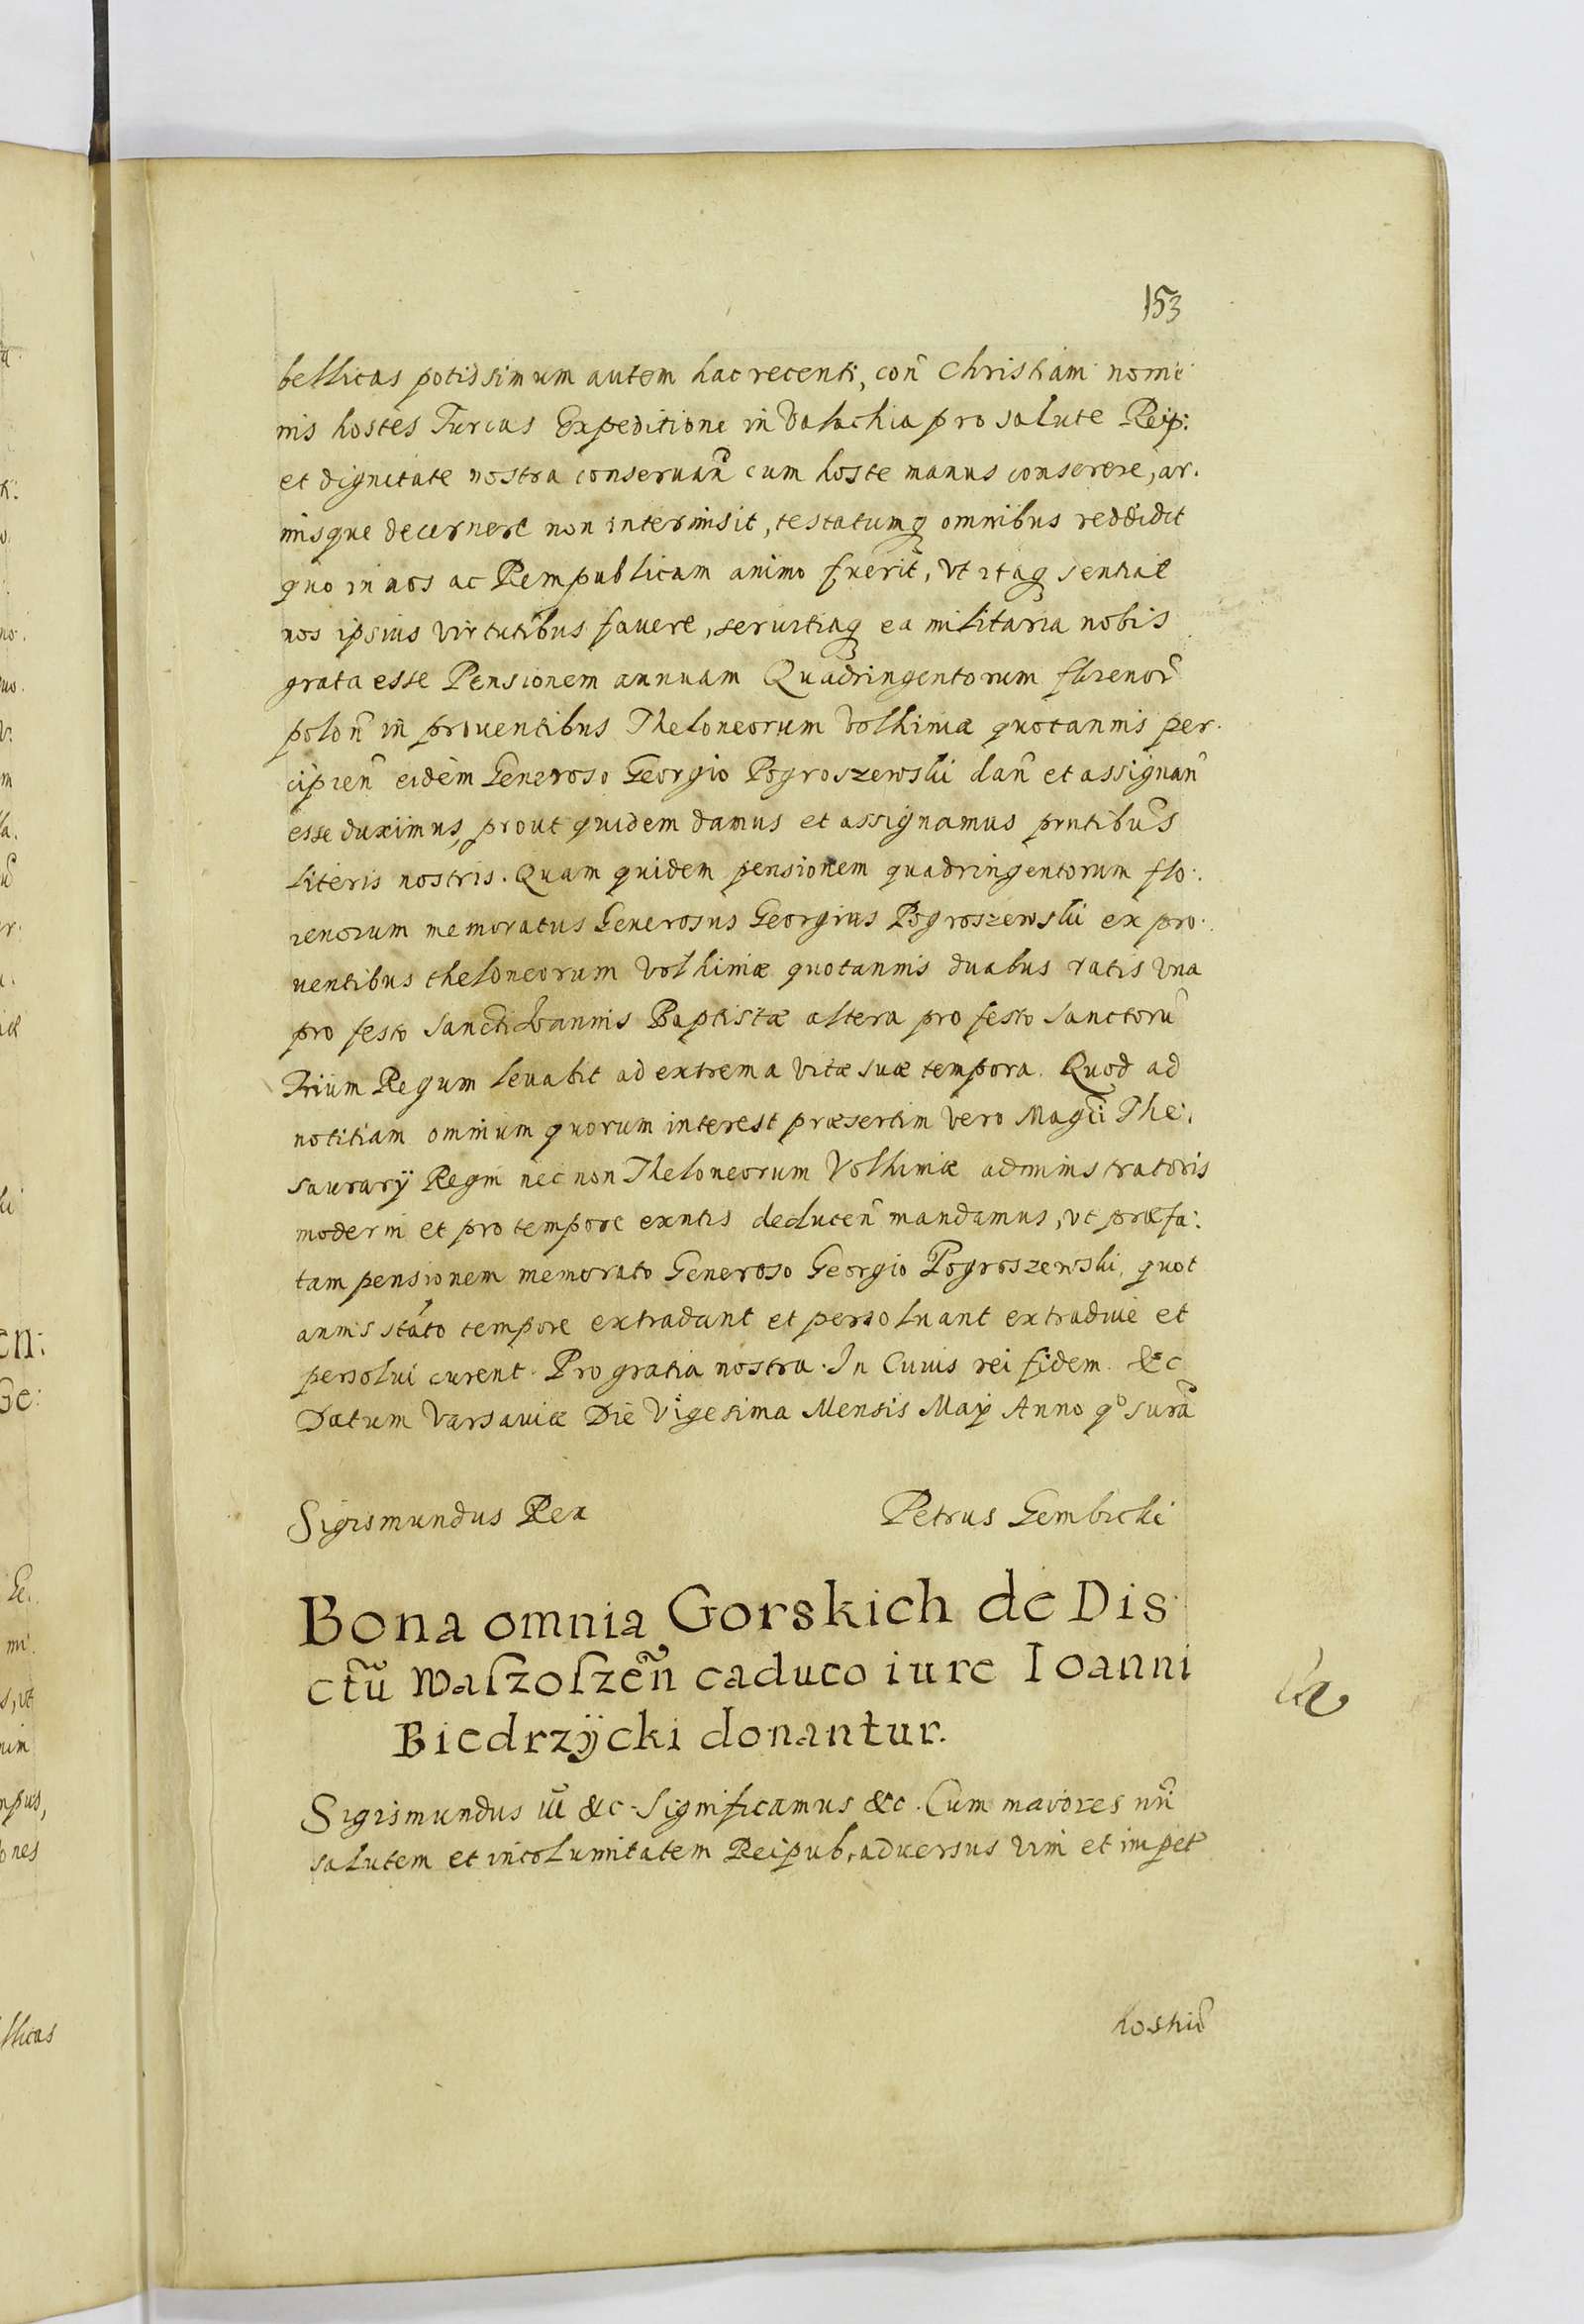 153
bellicas potissimum autem hac recenti, coñ Christiani nomi
nis hostes Turcas Expeditione in Valachia pro salute Reip:
et dignitate nostra conseruañ cum hoste manus conserere, ar.
misque decernere non intermisit, testatumq omnibus reddidit
quo in nos ac Rempublicam animo fuerit, Vt itaq sentiat
nos ipsius virtutibus fauere, seruitiaq ea militaria nobis
grata esse Pensionem annuam Quadringentorum florenor̃
poloñ in prouentibus Theloneorum Volhiniæ quotannis per.
cipieñ eidem Generoso Georgio Pogroszewski dañ et assignañ
esse duximus, prout quidem damus et assignamus pñtibus
literis nostris. Quam quidem pensionem quadringentorum flo:
renorum memoratus Generosus Georgius Pogroszewski ex pro.
uentibus theloneorum Volhiniæ quotannis duabus ratis Vna
pro festo Sancti Ioannis Baptistæ altera pro festo Sanctorũ
Trium Regum leuabit ad extrema vitæ suæ tempora. Quod ad
notitiam omnium quorum interest præsertim vero Magci The:
saurarÿ Regni nec non Theloneorum Volhiniæ administratoris
moderni et pro tempore exñtis deduceñ mandamus, vt præfa:
tam pensionem memorato Generoso Georgio Pogroszewski, quot
annis stato tempore extradant et persoluant extradiue et
persolui curent. Pro gratia nostra. In Cuius rei fidem &c
Datum Varsauiæ Die Vigesima Mensis Maÿ Anno qº surã
Sigismundus Rex Petrus Gembicki
Bona omnia Gorskich de Dis
ctũ Waszoszeñ caduco iure Ioanni
Biedrzÿcki donantur.
Sigismundus iii &c. Significamus &c. Cum maiores nr̃i
salutem et incolumitatem Reipub. aduersus vim et impet̃
hostiũ